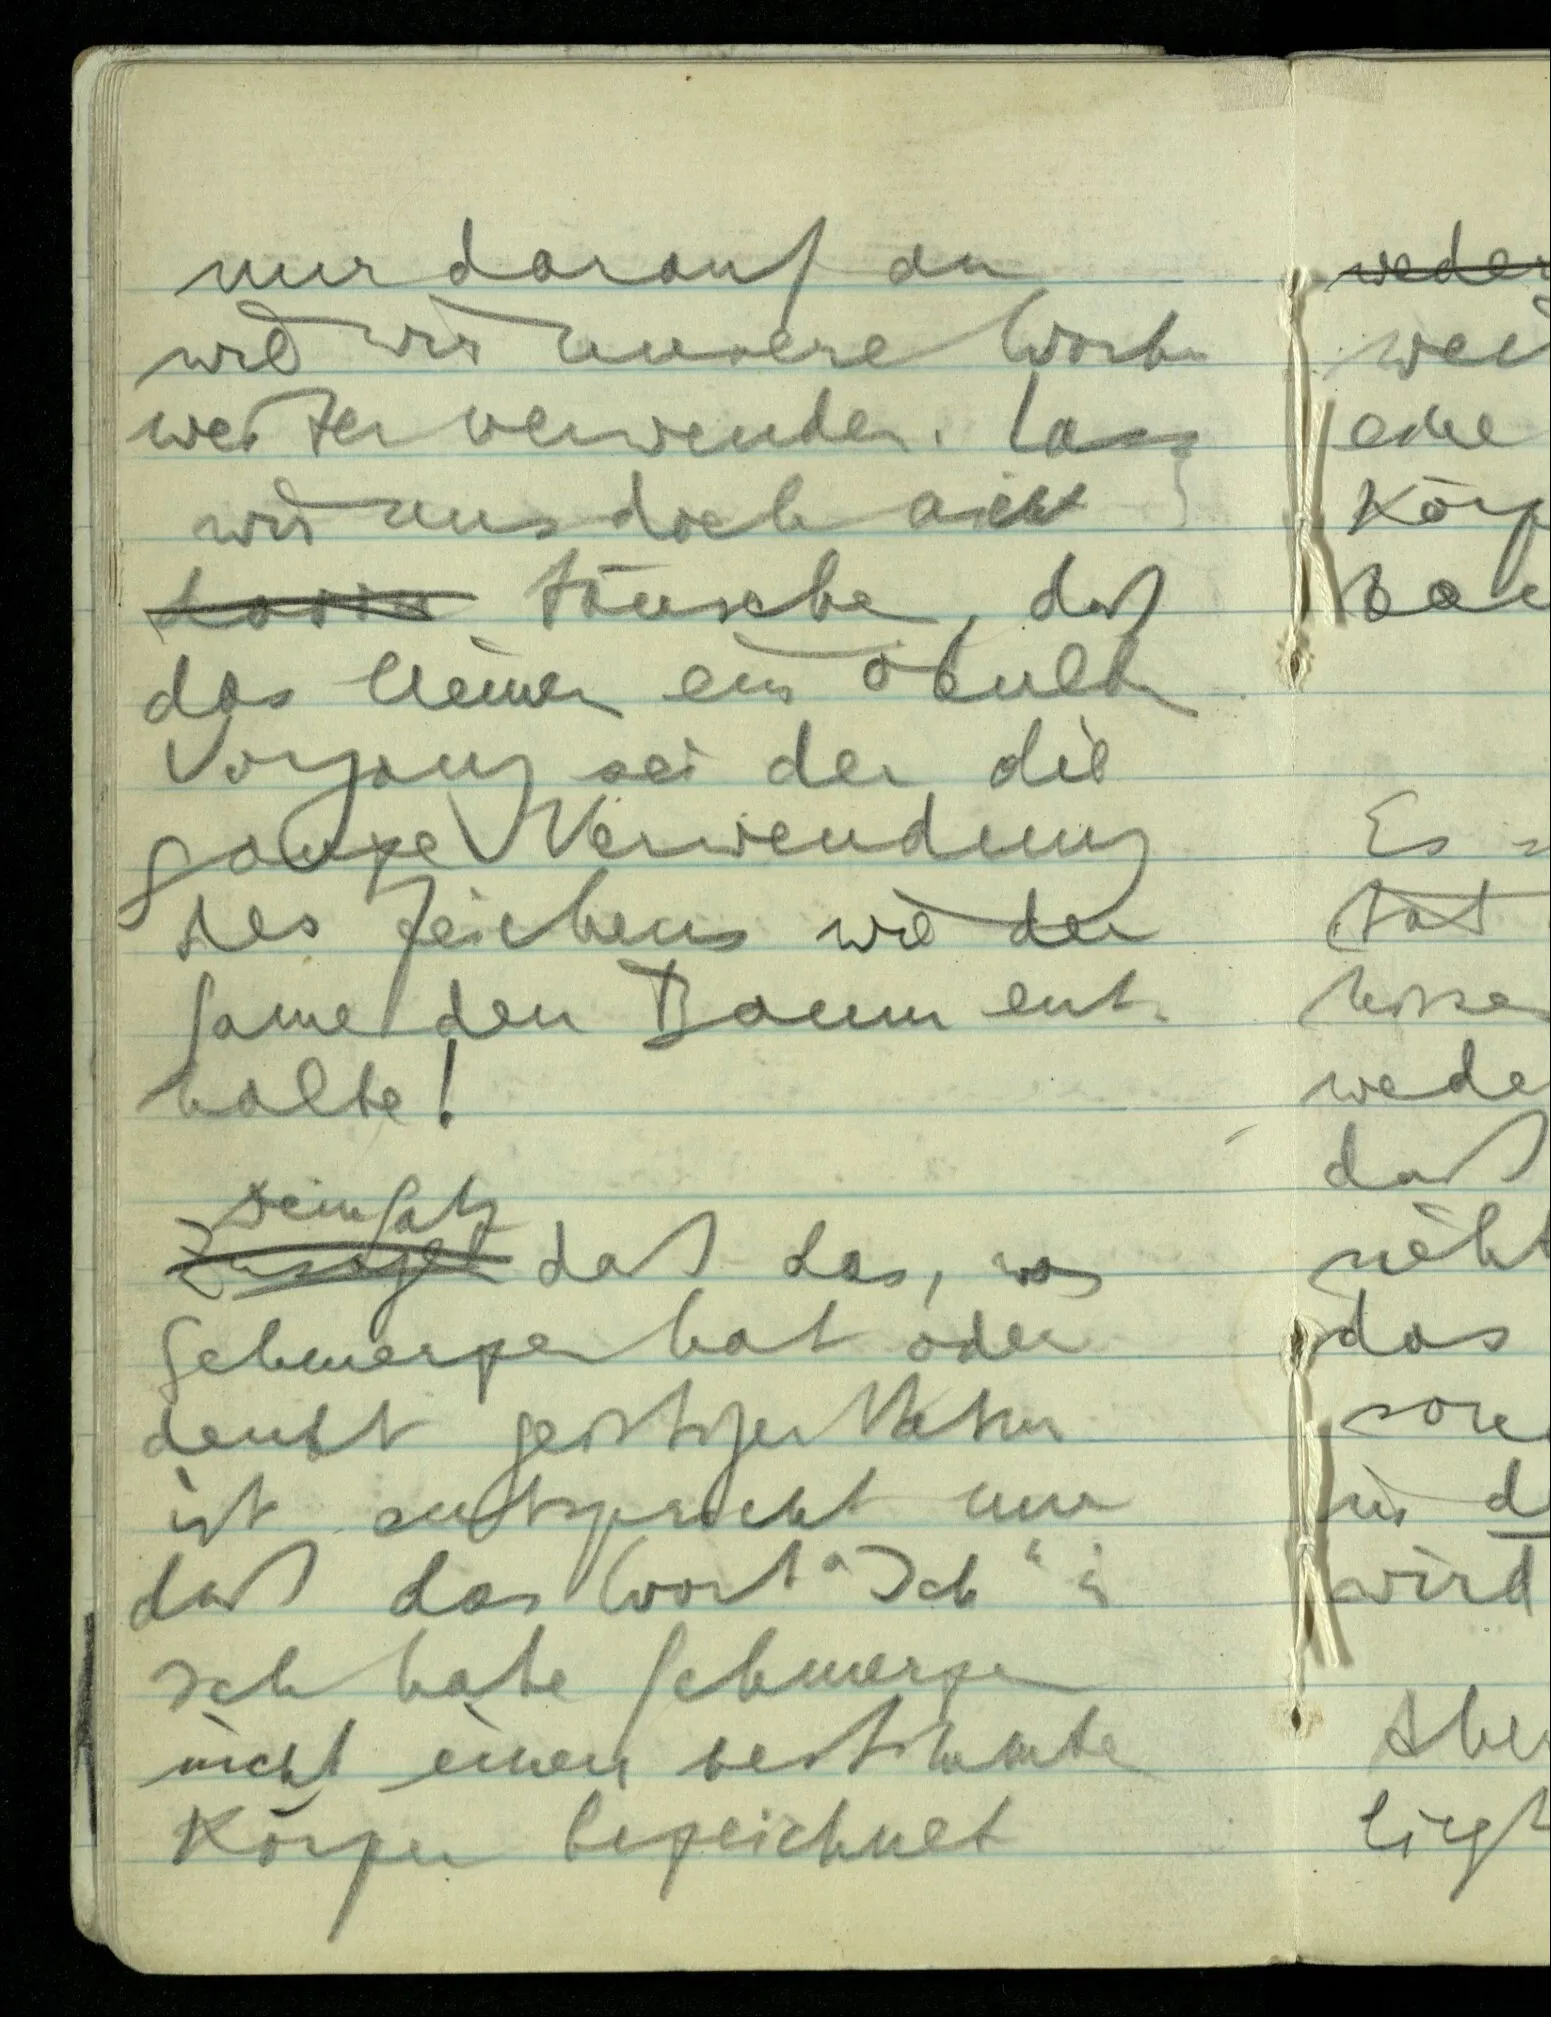 nur darauf an
wie wir unsere Worte
weiter verwenden. Lass
wir uns doch nicht
darin täusche, daß
das Meinen ein okulter
Vorgang sei der die
ganze Verwendung
des Zeichens wie der
Same den Baum ent-
halte!
Dem Satz
Zu sagen daß das, was
Schmerzen hat oder
denkt geistiger Natur
ist entspricht nur
daß das Wort "Ich" in
Ich habe Schmerzen
nicht einen bestimmten
Körper bezeichnet
weder
wei
eine
Körp
Es
tat
wede
daß
nicht
das
son
in d
wird
Aber
liegt